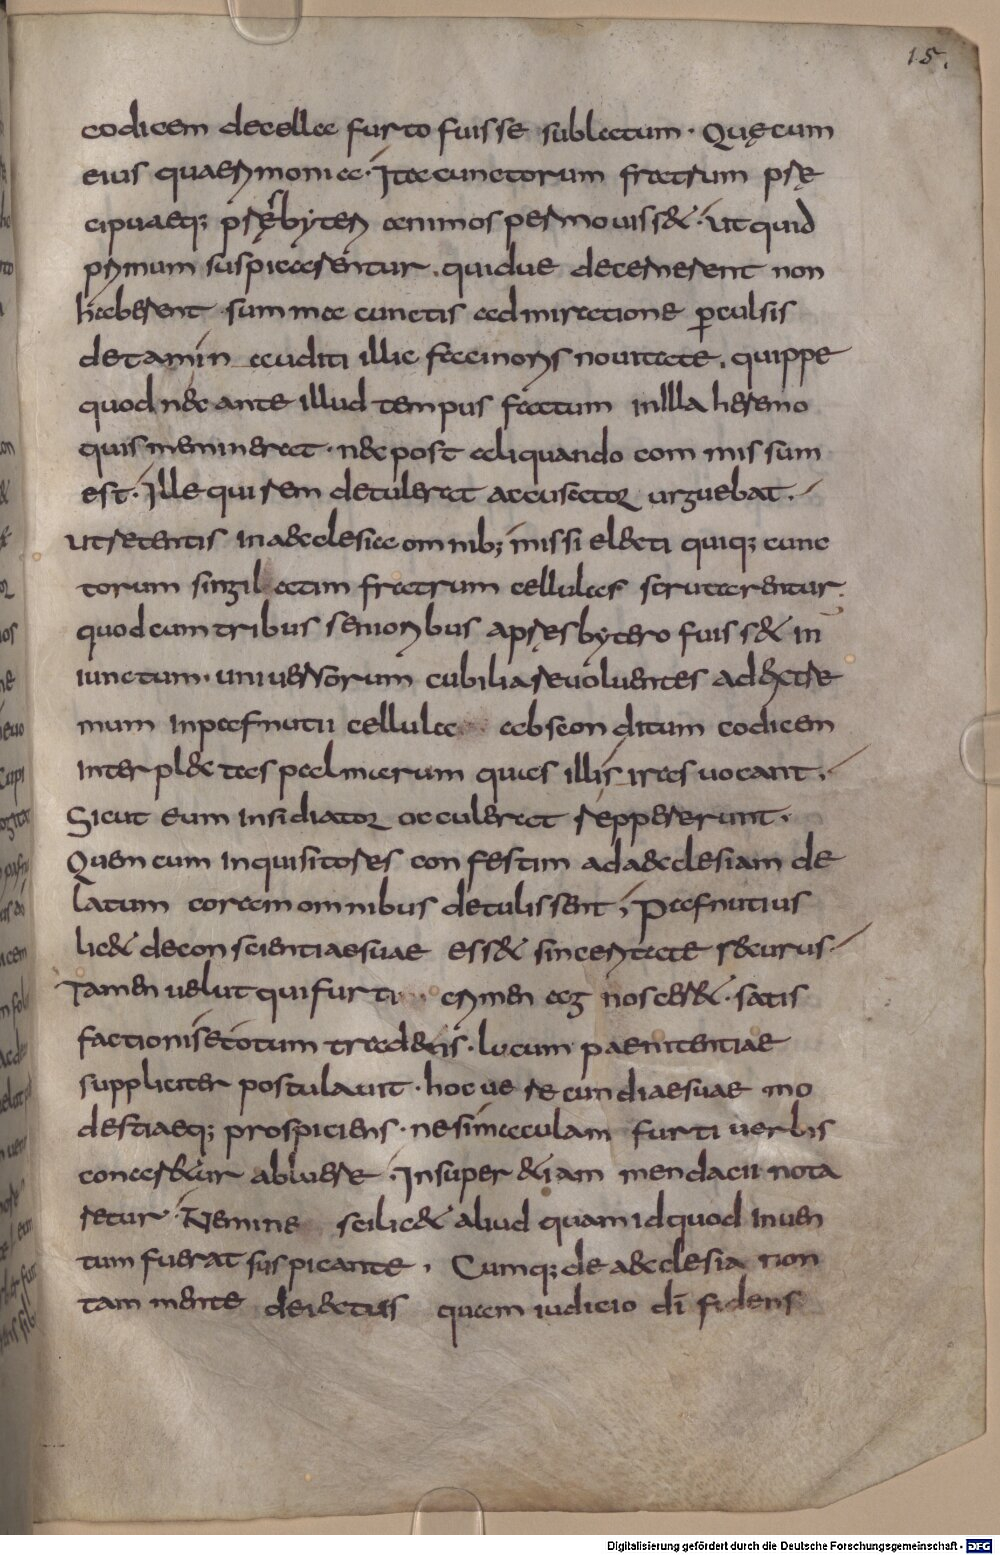 15.
codicem decella furto fuisse sublatum · Quęcum
eius quaerimonia · Ita cunctorum fratrum prę
cipuaeq; pręsbyteri animos permouisset · ut quid
primum suspicarentur . quidue decernerent non
haberent · summa cunctis admiratione perculsis
de tamin auditi illic facinoris nouitate . quippe
quod nec ante illud tempus factum inilla heremo
quis meminerat · nec post aliquando commissum
est · Ille qui rem detulerat accusator urguebat .
ut retentis in aecclesia omnib; missi electi quiq; cunc
torum singillatim fratrum cellulas scrutarentur ·
quod cum tribus senioribus apresbytero fuisset in
iunctum · uniuersorum cubilia reuoluentes ad extre
mum inpafnutii cellula absconditum codicem
inter plectas palmarum quas illi siras uocant .
Sicut eum insidiator occulerat repperierunt .
Quem cum inquisitores confestim adaecclesiam de
latum coram omnibus detulissent ; pafnutius
licet de conscientiae suae esset sinceritate securus ·
Tamen uelut qui furti crimen agnosceret · satis
factioni se totum tradens · locum paenitentiae
suppliciter postulauit · hoc uerecundiae suae mo
destiaeq; prospiciens · nesi maculam furti uerbis
conaretur abluere · Insuper etiam mendacii nota
retur · Nemine scilicet aliud quam id quod inuen
tum fuerat suspicante . Cumq; de aecclesia non
tam mente deiectus quam iudicio di fidens
Digitalisierung gefördert durch die Deutsche Forschungsgemeinschaft - DFG